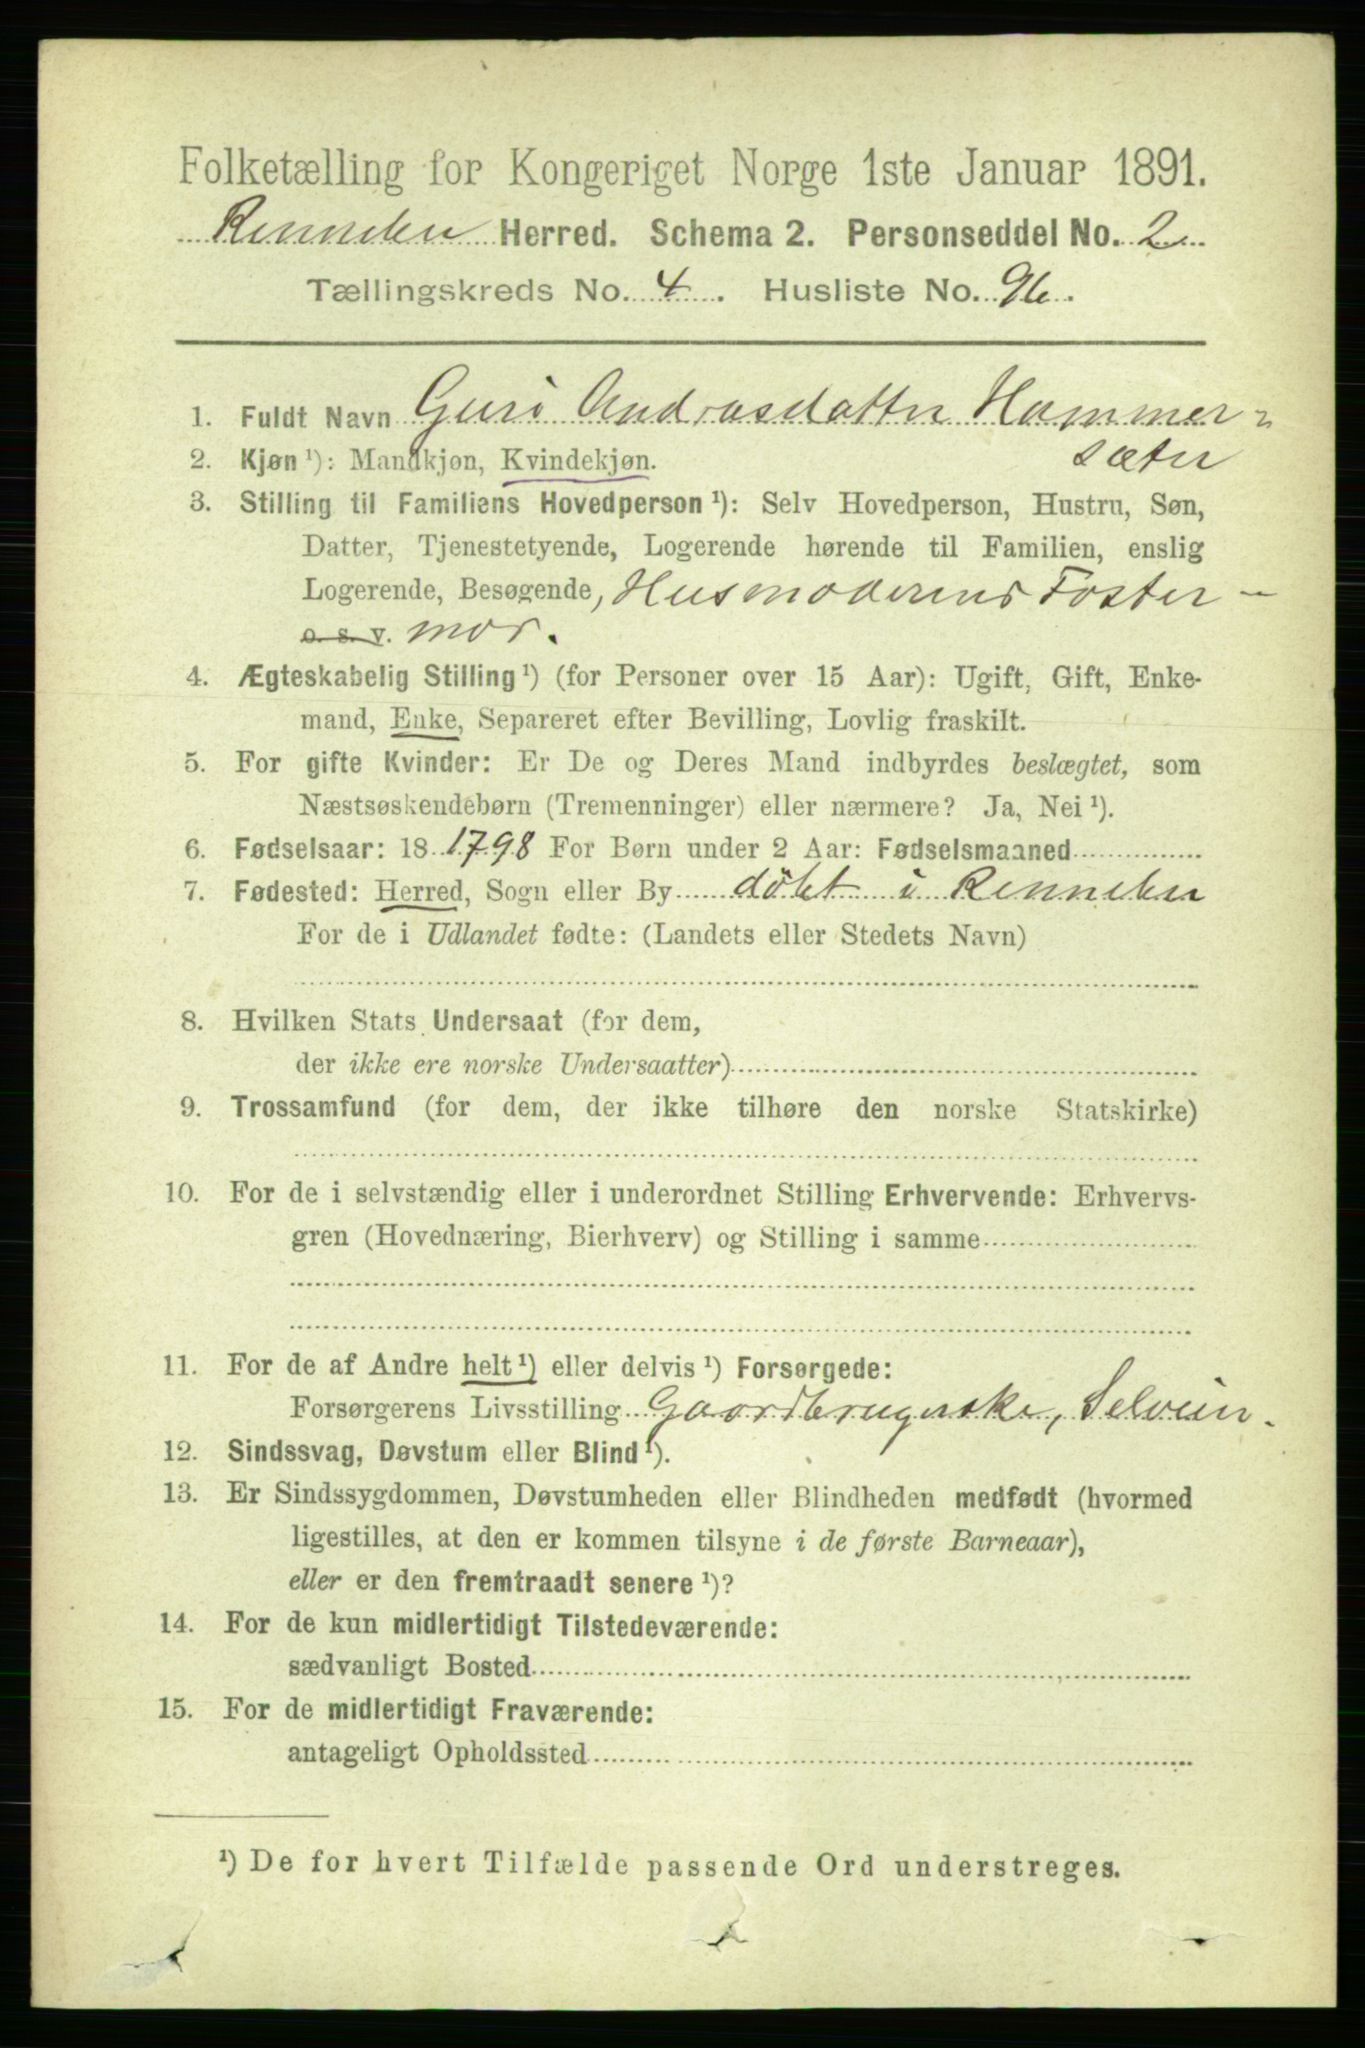 Folketælling for Kongeriget Norge 1ste Januar 1891.
Rennebu Herred. Schema 2. Personseddel No. 2.
Tællingskreds No. 4. Husliste No. 96.
1. Fuldt Navn Guri Andrasdatter Hammer=
sæter
2. Kjøn ¹): Mandkjøn, Kvindekjøn.
3. Stilling til Familiens Hovedperson ¹): Selv Hovedperson, Hustru, Søn,
Datter, Tjenestetyende, Logerende hørende til Familien, enslig
Logerende, Besøgende, Husmoderens Foster-
o. s. v. mor.
4. Ægteskabelig Stilling ¹) (for Personer over 15 Aar): Ugift, Gift, Enke-
mand, Enke, Separeret efter Bevilling, Lovlig fraskilt.
5. For gifte Kvinder: Er De og Deres Mand indbyrdes beslægtet, som
Næstsøskendebørn (Tremenninger) eller nærmere? Ja, Nei ¹).
6. Fødselsaar: 18 1798 For Børn under 2 Aar: Fødselsmaaned
7. Fødested: Herred, Sogn eller By døbt i Rennebu
For de i Udlandet fødte: (Landets eller Stedets Navn)
8. Hvilken Stats Undersaat (for dem,
der ikke ere norske Undersaatter)
9. Trossamfund (for dem, der ikke tilhøre den norske Statskirke)
10. For de i selvstændig eller i underordnet Stilling Erhvervende: Erhvervs-
gren (Hovednæring, Bierhverv) og Stilling i samme
11. For de af Andre helt ¹) eller delvis ¹) Forsørgede:
Forsørgerens Livsstilling Gaardbrugerske, Selveier.
12. Sindssvag, Døvstum eller Blind ¹).
13. Er Sindssygdommen, Døvstumheden eller Blindheden medfødt (hvormed
ligestilles, at den er kommen tilsyne i de første Barneaar),
eller er den fremtraadt senere ¹)?
14. For de kun midlertidigt Tilstedeværende:
sædvanligt Bosted
15. For de midlertidigt Fraværende:
antageligt Opholdssted
¹) De for hvert Tilfælde passende Ord understreges.